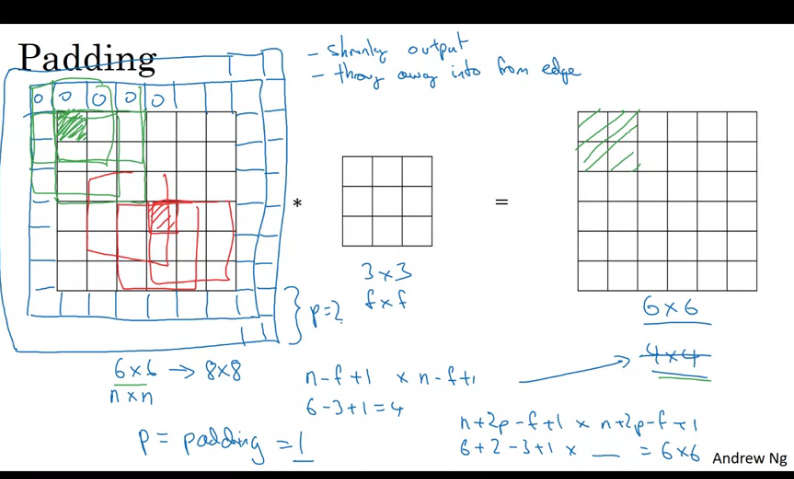 Padding
- shrinky output
- throw away info from edge
0 0 0 0 0
* =
3 × 3
f × f
p=2
6 × 6
4 × 4
6 × 6 → 8×8
n × n
n-f+1 × n-f+1
6-3+1=4
p = padding = 1
n+2p-f+1 × n+2p-f+1
6+2-3+1 × __ = 6×6
Andrew Ng